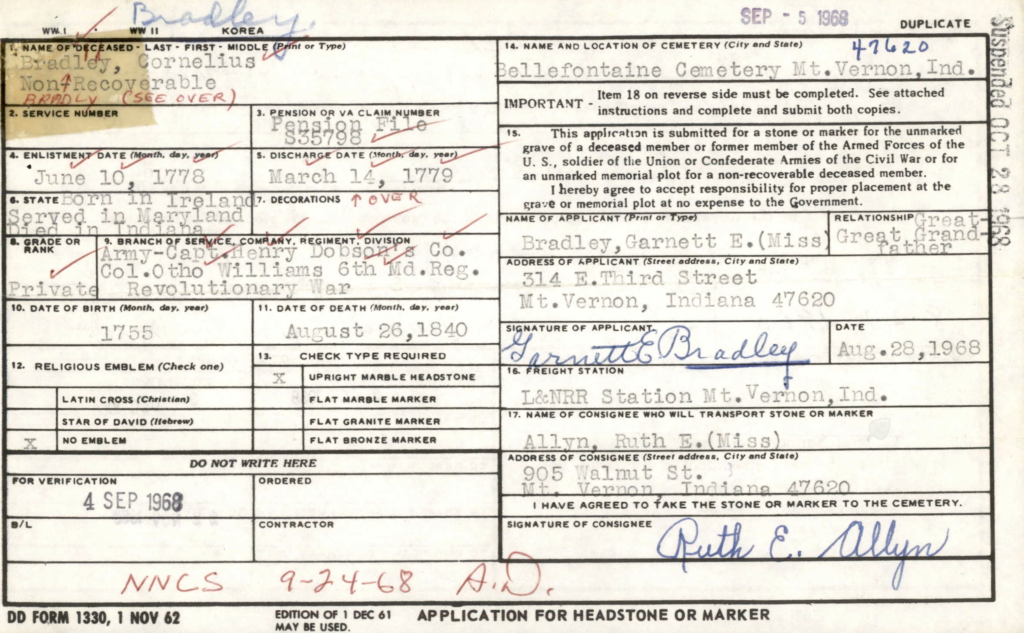 Bradley.
SEP - 5 1968
DUPLICATE
WW I WW II KOREA
Suspended OCT 28 1968
1. NAME OF DECEASED - LAST - FIRST - MIDDLE (Print or Type)
Bradley, Cornelius
Non Recoverable
BRADLY (SEE OVER)
2. SERVICE NUMBER
3. PENSION OR VA CLAIM NUMBER
Pension File
S35798
4. ENLISTMENT DATE (Month, day, year)
June 10, 1778
5. DISCHARGE DATE (Month, day, year)
March 14, 1779
6. STATE Born in Ireland
Served in Maryland
Died in Indiana
7. DECORATIONS ↑ OVER
8. GRADE OR RANK
Private
9. BRANCH OF SERVICE, COMPANY, REGIMENT, DIVISION
Army-Capt.Henry Dobson's Co.
Col.Otho Williams 6th Md.Reg.
Revolutionary War
10. DATE OF BIRTH (Month, day, year)
1755
11. DATE OF DEATH (Month, day, year)
August 26,1840
12. RELIGIOUS EMBLEM (Check one)
LATIN CROSS (Christian)
STAR OF DAVID (Hebrew)
X NO EMBLEM
13. CHECK TYPE REQUIRED
X UPRIGHT MARBLE HEADSTONE
FLAT MARBLE MARKER
FLAT GRANITE MARKER
FLAT BRONZE MARKER
DO NOT WRITE HERE
FOR VERIFICATION
4 SEP 1968
ORDERED
B/L
CONTRACTOR
14. NAME AND LOCATION OF CEMETERY (City and State) 47620
Bellefontaine Cemetery Mt.Vernon,Ind.
IMPORTANT - Item 18 on reverse side must be completed. See attached
instructions and complete and submit both copies.
15. This application is submitted for a stone or marker for the unmarked
grave of a deceased member or former member of the Armed Forces of the
U. S., soldier of the Union or Confederate Armies of the Civil War or for
an unmarked memorial plot for a non-recoverable deceased member.
I hereby agree to accept responsibility for proper placement at the
grave or memorial plot at no expense to the Government.
NAME OF APPLICANT (Print or Type)
Bradley,Garnett E.(Miss)
RELATIONSHIP Great-
Great Grand-
father
ADDRESS OF APPLICANT (Street address, City and State)
314 E.Third Street
Mt.Vernon, Indiana 47620
SIGNATURE OF APPLICANT
Garnett E Bradley
DATE
Aug.28,1968
16. FREIGHT STATION
L&NRR Station Mt. Vernon,Ind.
17. NAME OF CONSIGNEE WHO WILL TRANSPORT STONE OR MARKER
Allyn, Ruth E.(Miss)
ADDRESS OF CONSIGNEE (Street address, City and State)
905 Walnut St.
Mt. Vernon, Indiana 47620
I HAVE AGREED TO TAKE THE STONE OR MARKER TO THE CEMETERY.
SIGNATURE OF CONSIGNEE
Ruth E. Allyn
NNCS 9-24-68 A.D.
DD FORM 1330, 1 NOV 62
EDITION OF 1 DEC 61
MAY BE USED.
APPLICATION FOR HEADSTONE OR MARKER